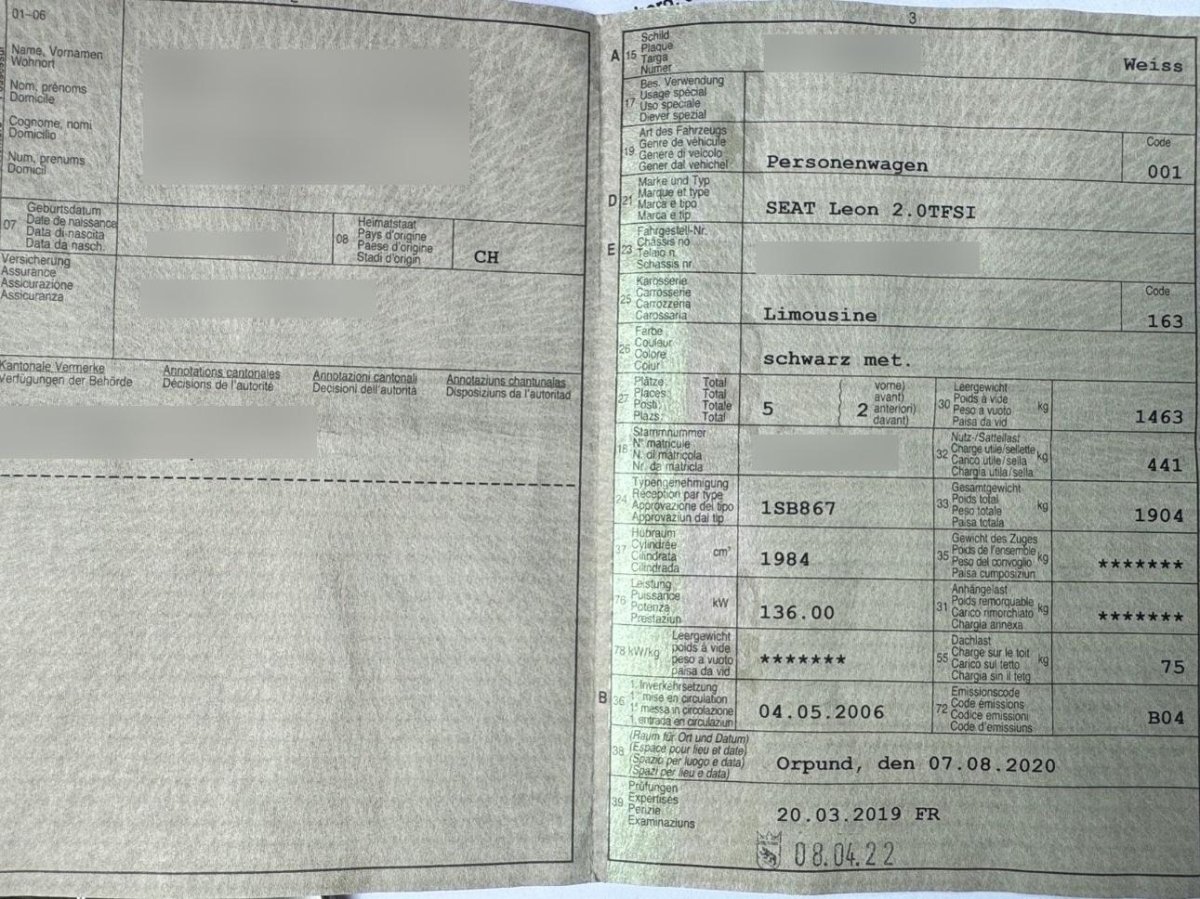 01-06
Name, Vornamen
Wohnort
Nom, prénoms
Domicile
Cognome, nomi
Domicilio
Num, prenums
Domicil
07
Geburtsdatum
Date de naissance
Data di nascita
Data da nasch.
08
Heimatstaat
Pays d'origine
Paese d'origine
Stadi d'origin
CH
Versicherung
Assurance
Assicurazione
Assicuranza
Kantonale Vermerke
Verfügungen der Behörde
Annotations cantonales
Décisions de l'autorité
Annotazioni cantonali
Decisioni dell'autorità
Annotaziuns chantunalas
Disposiziuns da l'autoritad
3
A 15
Schild
Plaque
Targa
Numer
Weiss
17
Bes. Verwendung
Usage spécial
Uso speciale
Diever spezial
19
Art des Fahrzeugs
Genre de véhicule
Genere di veicolo
Gener dal vehichel
Personenwagen
Code
001
D 21
Marke und Typ
Marque et type
Marca e tipo
Marca e tip
SEAT Leon 2.0TFSI
E 23
Fahrgestell-Nr.
Châssis no
Telaio n.
Schassis nr.
25
Karosserie
Carrosserie
Carrozzeria
Carossaria
Limousine
Code
163
26
Farbe
Couleur
Colore
Colur
schwarz met.
27
Plätze Total
Places Total
Posti Totale
Plazs Total
5
2
vorne)
avant)
anteriori)
davant)
30
Leergewicht
Poids à vide
Peso a vuoto
Paisa da vid
kg
1463
18
Stammnummer
N° matricule
N. di matricola
Nr. da matricla
32
Nutz-/Sattellast
Charge utile/sellette
Carico utile/sella
Chargia utila/sella
kg
441
24
Typengenehmigung
Réception par type
Approvazione del tipo
Approvaziun dal tip
1SB867
33
Gesamtgewicht
Poids total
Peso totale
Paisa totala
kg
1904
37
Hubraum
Cylindrée
Cilindrata
Cilindrada
cm³
1984
35
Gewicht des Zuges
Poids de l'ensemble
Peso del convoglio
Paisa cumposiziun
kg
*******
76
Leistung
Puissance
Potenza
Prestaziun
kW
136.00
31
Anhängelast
Poids remorquable
Carico rimorchiato
Chargia annexa
kg
*******
78 kW/kg
Leergewicht
poids à vide
peso a vuoto
paisa da vid
*******
55
Dachlast
Charge sur le toit
Carico sul tetto
Chargia sin il tetg
kg
75
B 36
1. Inverkehrsetzung
1re mise en circulation
1a messa in circolazione
1. entrada en circulaziun
04.05.2006
72
Emissionscode
Code émissions
Codice emissioni
Code d'emissiuns
B04
38
(Raum für Ort und Datum)
(Espace pour lieu et date)
(Spazio per luogo e data)
(Spazi per lieu e data)
Orpund, den 07.08.2020
39
Prüfungen
Expertises
Perizie
Examinaziuns
20.03.2019 FR
08.04.22